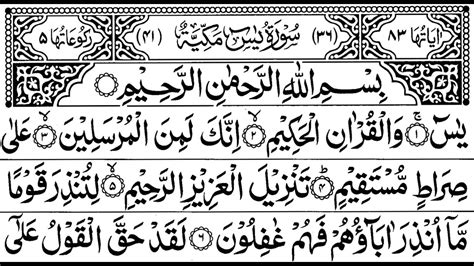 اٰیَاتُهَا ٨٣ (٣٦) سُوْرَةُ يٰسٓ مَكِّيَّةٌ (٤١) رُكُوْعَاتُهَا ٥
بِسْمِ اللهِ الرَّحْمٰنِ الرَّحِيْمِ
يٰسٓ ۝١ وَالْقُرْاٰنِ الْحَكِيْمِ ۝٢ اِنَّكَ لَمِنَ الْمُرْسَلِيْنَ ۝٣ عَلٰى
صِرَاطٍ مُّسْتَقِيْمٍ ۝٤ تَنْزِيْلَ الْعَزِيْزِ الرَّحِيْمِ ۝٥ لِتُنْذِرَ قَوْمًا
مَّاۤ اُنْذِرَ اٰبَآؤُهُمْ فَهُمْ غٰفِلُوْنَ ۝٦ لَقَدْ حَقَّ الْقَوْلُ عَلٰۤى